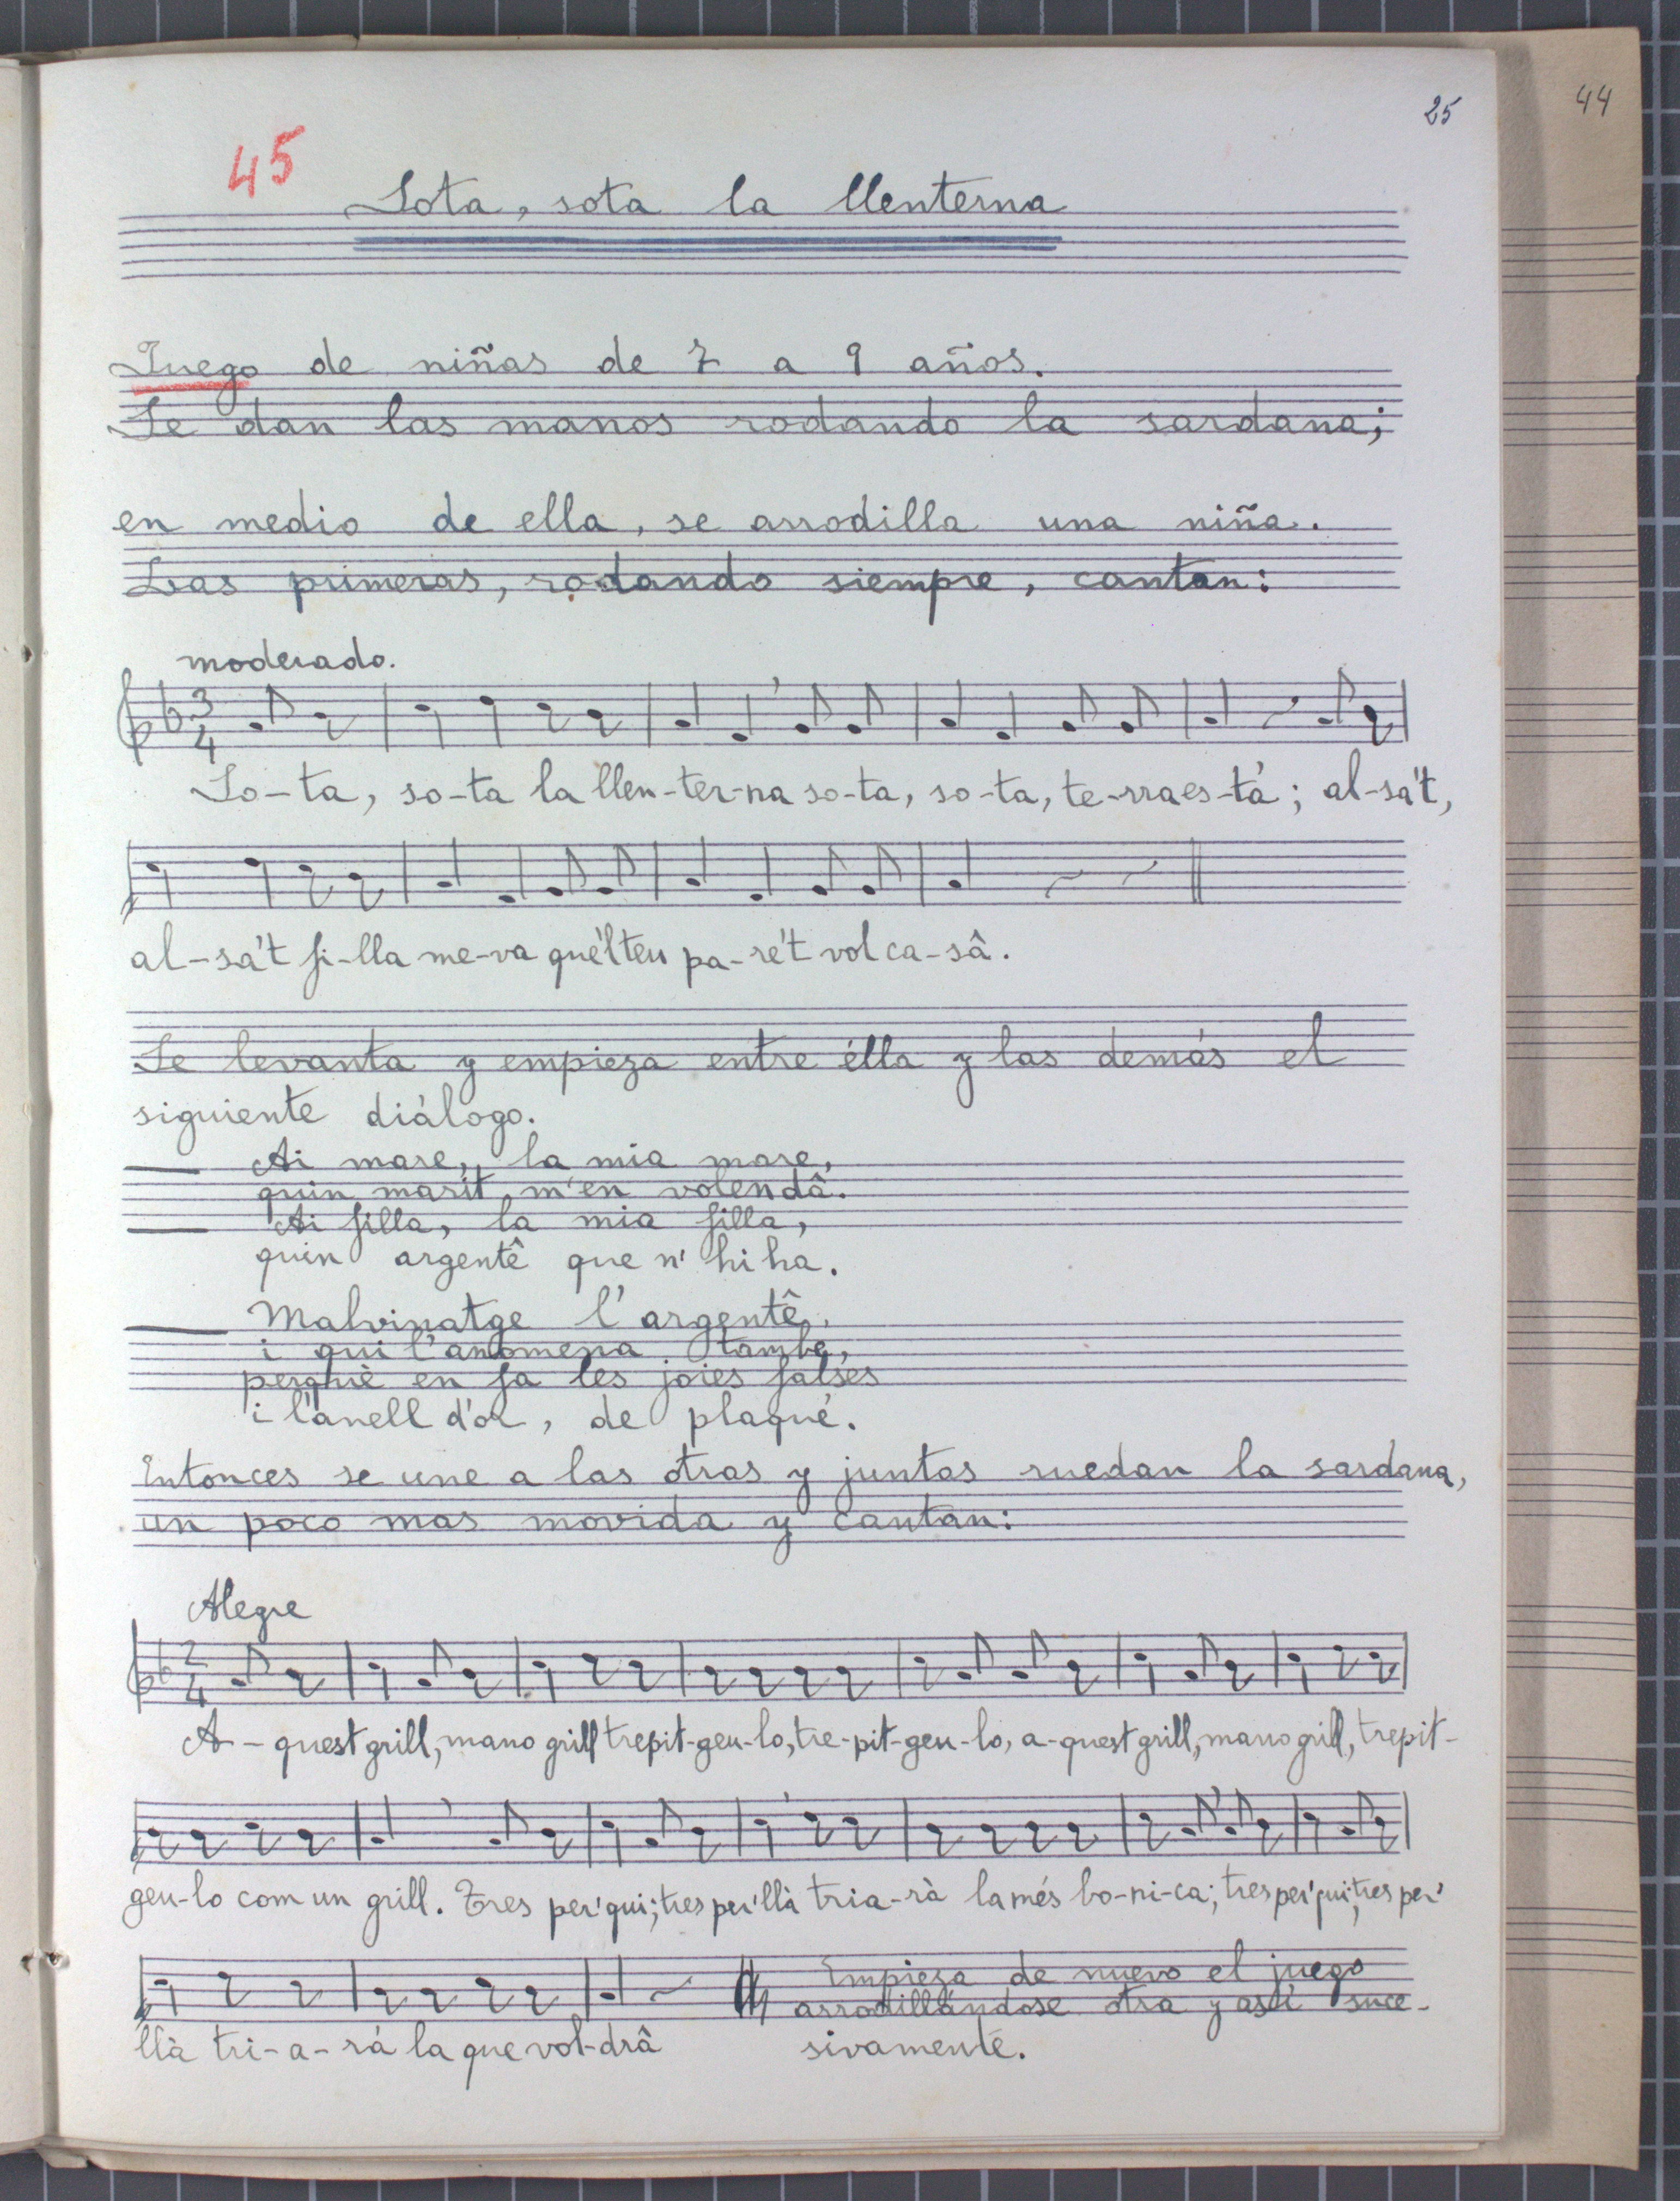 25
44
45
Sota, sota la llenterna
Juego de niñas de 7 a 9 años.
Se dan las manos rodando la sardana;
en medio de ella, se arrodilla una niña.
Las primeras, rodando siempre, cantan:
moderado.
3
4
So-ta, so-ta la llen-ter-na so-ta, so-ta, te-rra es-tá; al-sa't,
al-sa't fi-lla me-va qué'l teu pa-re't vol ca-sâ.
Se levanta y empieza entre élla y las demás el
siguiente diálogo.
— Ai mare, la mia mare,
quin marit m'en volen dâ.
— Ai filla, la mia filla,
quin argentê que n'hi ha.
— Malvinatge l'argentê,
i qui l'anomena tambe,
perquè en fa les joies falses
i l'anell d'or, de plaqué.
Entonces se une a las otras y juntas ruedan la sardana,
un poco mas movida y cantan:
Alegre
2
4
A-quest grill, mano grill trepit-geu-lo, tre-pit-geu-lo, a-quest grill, mano grill, trepit-
geu-lo com un grill. Tres per'qui; tres per'llà tria-rà la més bo-ni-ca; tres per'qui; tres per'
llà tri-a-rá la que vol-drâ
Empieza de nuevo el juego
arrodillándose otra y así suce-
sivamente.